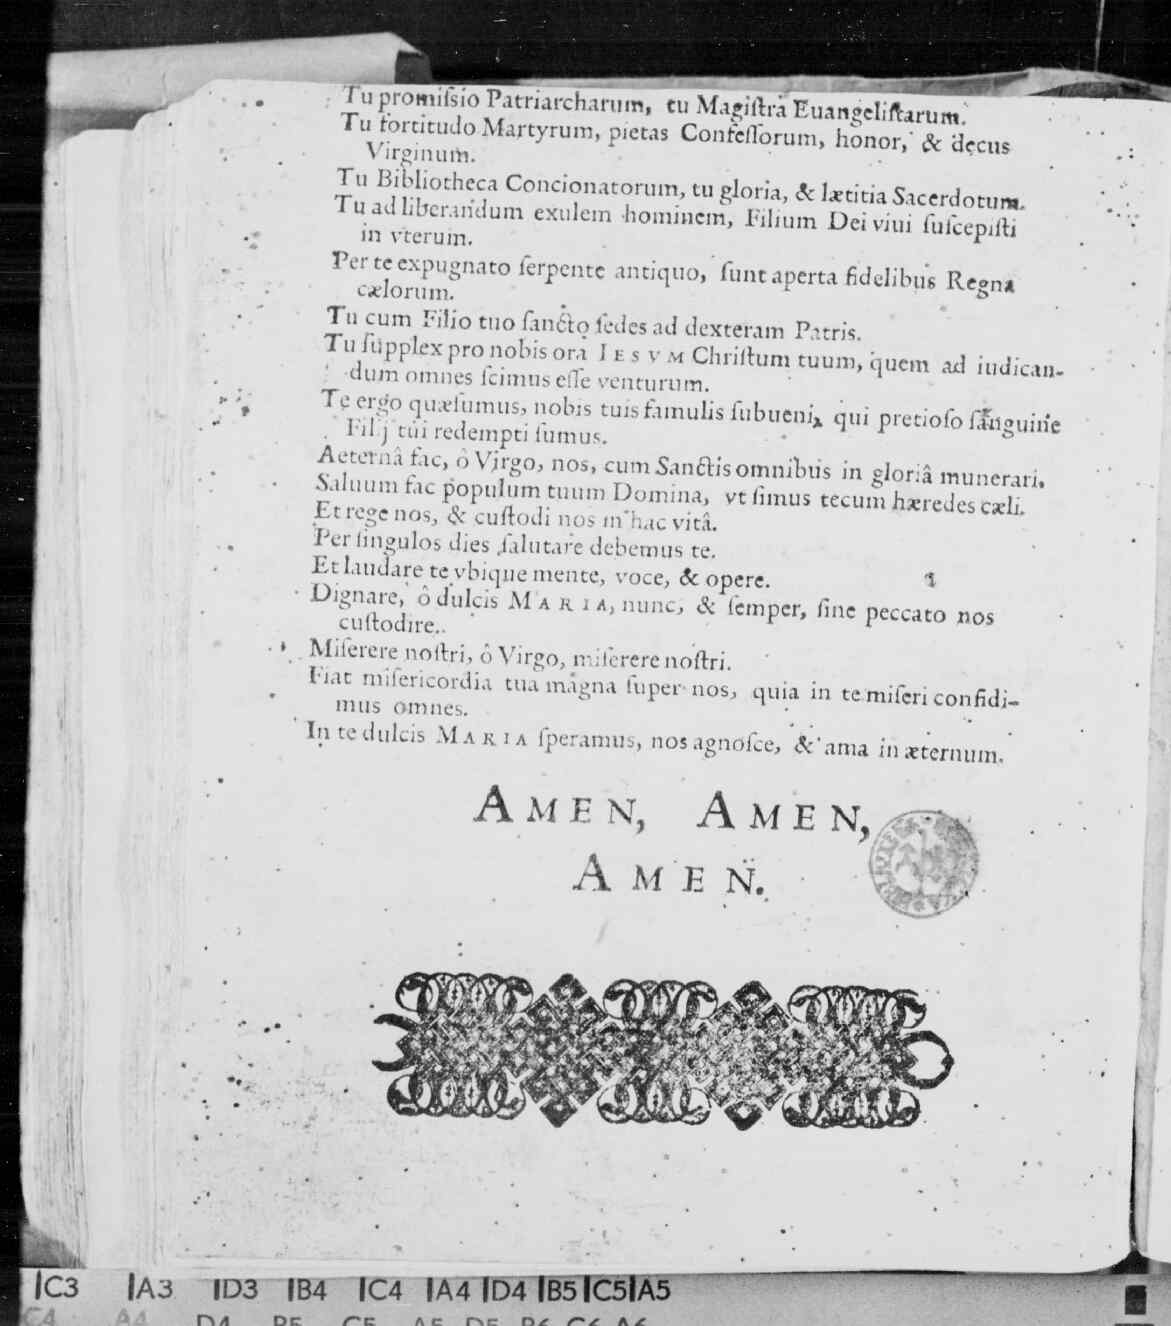 Tu promiſsio Patriarcharum, tu Magiſtra Euangeliſtarum.
Tu fortitudo Martyrum, pietas Confeſſorum, honor, & decus
Virginum.
Tu Bibliotheca Concionatorum, tu gloria, & lætitia Sacerdotum.
Tu ad liberandum exulem hominem, Filium Dei viui ſuſcepiſti
in vterum.
Per te expugnato ſerpente antiquo, ſunt aperta fidelibus Regna
cælorum.
Tu cum Filio tuo ſancto ſedes ad dexteram Patris.
Tu ſupplex pro nobis ora IESVM Chriſtum tuum, quem ad iudican-
dum omnes ſcimus eſſe venturum.
Te ergo quæſumus, nobis tuis famulis ſubueni, qui pretioſo ſanguine
Filij tui redempti ſumus.
Aeternâ fac, ô Virgo, nos, cum Sanctis omnibus in gloriâ munerari.
Saluum fac populum tuum Domina, vt ſimus tecum hæredes cæli.
Et rege nos, & cuſtodi nos in hac vitâ.
Per ſingulos dies ſalutare debemus te.
Et laudare te vbique mente, voce, & opere.
Dignare, ô dulcis MARIA, nunc, & ſemper, ſine peccato nos
cuſtodire.
Miſerere noſtri, ô Virgo, miſerere noſtri.
Fiat miſericordia tua magna ſuper nos, quia in te miſeri confidi-
mus omnes.
In te dulcis MARIA ſperamus, nos agnoſce, & ama in æternum.
AMEN, AMEN,
AMEN.
C3 A3 D3 B4 C4 A4 D4 B5 C5 A5
C4 A4 D4 B5 C5 A5 D5 B6 C6 A6